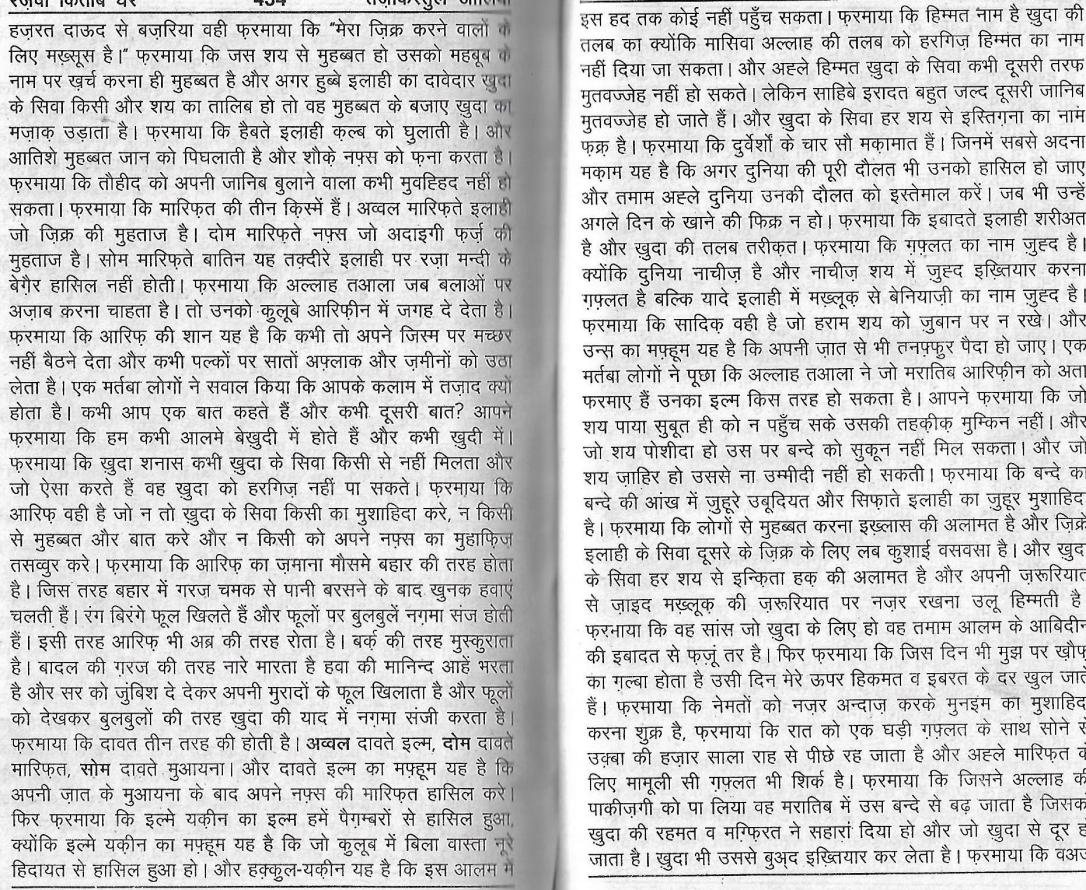 रज़वी किताब घर 454 तज़किरतुल औलिया
हज़रत दाऊद से बज़रिया वही फ़रमाया कि “मेरा ज़िक्र करने वालों के
लिए मख़्सूस है।” फ़रमाया कि जिस शय से मुहब्बत हो उसको महबूब के
नाम पर ख़र्च करना ही मुहब्बत है और अगर हुब्बे इलाही का दावेदार ख़ुदा
के सिवा किसी और शय का तालिब हो तो वह मुहब्बत के बजाए ख़ुदा का
मज़ाक़ उड़ाता है। फ़रमाया कि हैबते इलाही क़ल्ब को घुलाती है। और
आतिशे मुहब्बत जान को पिघलाती है और शौक़े नफ़्स को फ़ना करता है।
फ़रमाया कि तौहीद को अपनी जानिब बुलाने वाला कभी मुवह्हिद नहीं हो
सकता। फ़रमाया कि मारिफ़त की तीन क़िस्में हैं। अव्वल मारिफ़ते इलाही
जो ज़िक्र की मुहताज है। दोम मारिफ़ते नफ़्स जो अदाइगी फ़र्ज़ की
मुहताज है। सोम मारिफ़ते बातिन यह तक़्दीरे इलाही पर रज़ा मन्दी के
बेग़ैर हासिल नहीं होती। फ़रमाया कि अल्लाह तआला जब बलाओं पर
अज़ाब करना चाहता है। तो उनको क़ुलूबे आरिफ़ीन में जगह दे देता है।
फ़रमाया कि आरिफ़ की शान यह है कि कभी तो अपने जिस्म पर मच्छर
नहीं बैठने देता और कभी पल्कों पर सातों अफ़्लाक और ज़मीनों को उठा
लेता है। एक मर्तबा लोगों ने सवाल किया कि आपके कलाम में तज़ाद क्यों
होता है। कभी आप एक बात कहते हैं और कभी दूसरी बात? आपने
फ़रमाया कि हम कभी आलमे बेख़ुदी में होते हैं और कभी ख़ुदी में।
फ़रमाया कि ख़ुदा शनास कभी ख़ुदा के सिवा किसी से नहीं मिलता और
जो ऐसा करते हैं वह ख़ुदा को हरगिज़ नहीं पा सकते। फ़रमाया कि
आरिफ़ वही है जो न तो ख़ुदा के सिवा किसी का मुशाहिदा करे, न किसी
से मुहब्बत और बात करे और न किसी को अपने नफ़्स का मुहाफ़िज़
तसव्वुर करे। फ़रमाया कि आरिफ़ का ज़माना मौसमे बहार की तरह होता
है। जिस तरह बहार में गरज चमक से पानी बरसने के बाद ख़ुनक हवाएं
चलती हैं। रंग बिरंगे फूल खिलते हैं और फूलों पर बुलबुलें नग़मा संज होती
हैं। इसी तरह आरिफ़ भी अब्र की तरह रोता है। बर्क़ की तरह मुस्कुराता
है। बादल की गरज की तरह नारे मारता है हवा की मानिन्द आहें भरता
है और सर को जुंबिश दे देकर अपनी मुरादों के फूल खिलाता है और फूलों
को देखकर बुलबुलों की तरह ख़ुदा की याद में नग़मा संजी करता है।
फ़रमाया कि दावत तीन तरह की होती है। अव्वल दावते इल्म, दोम दावते
मारिफ़त, सोम दावते मुआयना। और दावते इल्म का मफ़्हूम यह है कि
अपनी ज़ात के मुआयना के बाद अपने नफ़्स की मारिफ़त हासिल करे।
फिर फ़रमाया कि इल्मे यक़ीन का इल्म हमें पैग़म्बरों से हासिल हुआ,
क्योंकि इल्मे यक़ीन का मफ़्हूम यह है कि जो क़ुलूब में बिला वास्ता नूरे
हिदायत से हासिल हुआ हो। और हक़्क़ुल-यक़ीन यह है कि इस आलम में
इस हद तक कोई नहीं पहुँच सकता। फ़रमाया कि हिम्मत नाम है ख़ुदा की
तलब का क्योंकि मासिवा अल्लाह की तलब को हरगिज़ हिम्मत का नाम
नहीं दिया जा सकता। और अह्ले हिम्मत ख़ुदा के सिवा कभी दूसरी तरफ़
मुतवज्जेह नहीं हो सकते। लेकिन साहिबे इरादत बहुत जल्द दूसरी जानिब
मुतवज्जेह हो जाते हैं। और ख़ुदा के सिवा हर शय से इस्तिग़ना का नाम
फ़क़्र है। फ़रमाया कि दुर्वेशों के चार सौ मक़ामात हैं। जिनमें सबसे अदना
मक़ाम यह है कि अगर दुनिया की पूरी दौलत भी उनको हासिल हो जाए
और तमाम अह्ले दुनिया उनकी दौलत को इस्तेमाल करें। जब भी उन्हें
अगले दिन के खाने की फ़िक्र न हो। फ़रमाया कि इबादते इलाही शरीअत
है और ख़ुदा की तलब तरीक़त। फ़रमाया कि ग़फ़्लत का नाम ज़ुह्द है।
क्योंकि दुनिया नाचीज़ है और नाचीज़ शय में ज़ुह्द इख़्तियार करना
ग़फ़्लत है बल्कि यादे इलाही में मख़्लूक़ से बेनियाज़ी का नाम ज़ुह्द है।
फ़रमाया कि सादिक़ वही है जो हराम शय को ज़ुबान पर न रखे। और
उन्स का मफ़्हूम यह है कि अपनी ज़ात से भी तनफ़्फ़ुर पैदा हो जाए। एक
मर्तबा लोगों ने पूछा कि अल्लाह तआला ने जो मरातिब आरिफ़ीन को अता
फ़रमाए हैं उनका इल्म किस तरह हो सकता है। आपने फ़रमाया कि जो
शय पाया सुबूत ही को न पहुँच सके उसकी तहक़ीक़ मुम्किन नहीं। और
जो शय पोशीदा हो उस पर बन्दे को सुकून नहीं मिल सकता। और जो
शय ज़ाहिर हो उससे ना उम्मीदी नहीं हो सकती। फ़रमाया कि बन्दे का
बन्दे की आंख में ज़ुहूरे उबूदियत और सिफ़ाते इलाही का ज़ुहूर मुशाहिद
है। फ़रमाया कि लोगों से मुहब्बत करना इख़्लास की अलामत है और ज़िक्रे
इलाही के सिवा दूसरे के ज़िक्र के लिए लब कुशाई वसवसा है। और ख़ुदा
के सिवा हर शय से इन्क़िता हक़ की अलामत है और अपनी ज़रूरियात
से ज़ाइद मख़्लूक़ की ज़रूरियात पर नज़र रखना उलू हिम्मती है
फ़रमाया कि वह सांस जो ख़ुदा के लिए हो वह तमाम आलम के आबिदीन
की इबादत से फ़ज़ूं तर है। फिर फ़रमाया कि जिस दिन भी मुझ पर ख़ौफ़
का ग़ल्बा होता है उसी दिन मेरे ऊपर हिकमत व इबरत के दर खुल जाते
हैं। फ़रमाया कि नेमतों को नज़र अन्दाज़ करके मुनइम का मुशाहिद
करना शुक्र है, फ़रमाया कि रात को एक घड़ी ग़फ़्लत के साथ सोने से
उक़्बा की हज़ार साला राह से पीछे रह जाता है और अह्ले मारिफ़त के
लिए मामूली सी ग़फ़्लत भी शिर्क है। फ़रमाया कि जिसने अल्लाह की
पाकीज़गी को पा लिया वह मरातिब में उस बन्दे से बढ़ जाता है जिसक
ख़ुदा की रहमत व मग़्फ़िरत ने सहारां दिया हो और जो ख़ुदा से दूर ह
जाता है। ख़ुदा भी उससे बुअ्द इख़्तियार कर लेता है। फ़रमाया कि वअज